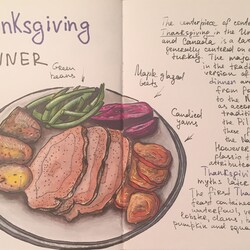 anksgiving
NNER
Green
beans
Maple glazed
beets
Candied
yams
The centerpiece of conte
Thanksgiving in the Uni
and Canada is a lar
generally centered on a
turkey. The major
in the tradi
version of
dinner
from
to
accor
traditi
the Pil
th
Howeve
classic
attribut
Thanksgivi
myths
The First Thanks
feast contained
waterfowl,
lobster, clams,
pumpkin and squ